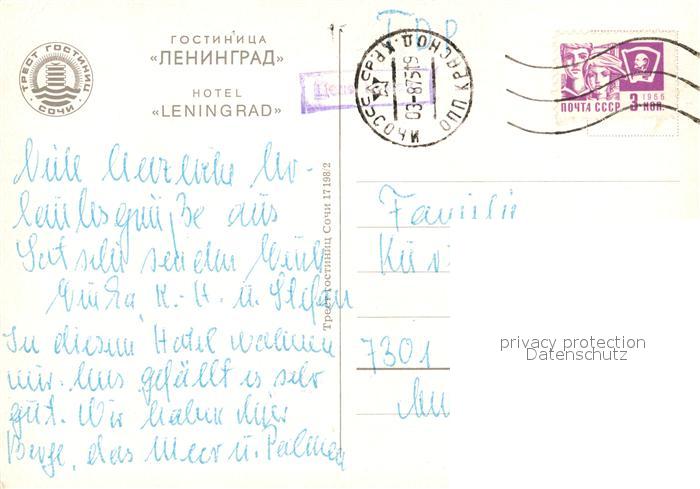 ТРЕСТ ГОСТИНИЦ
СОЧИ
ГОСТИНИЦА
«ЛЕНИНГРАД»
HOTEL
«LENINGRAD»
СОЧИ
КРАСНОД. КР.
03-8 75 19
ПОЧТА СССР 3 КОП.
1966
Viele herzliche Ur-
laubsgrüße aus
Sotschi senden Euch
K.-H. u. Stefan
In diesem Hotel wohnen
wir. Uns gefällt es sehr
gut. Wir haben hier
Berge, das Meer u. Palmen
Трест гостиниц Сочи 17198/2
Familie
7301
privacy protection
Datenschutz